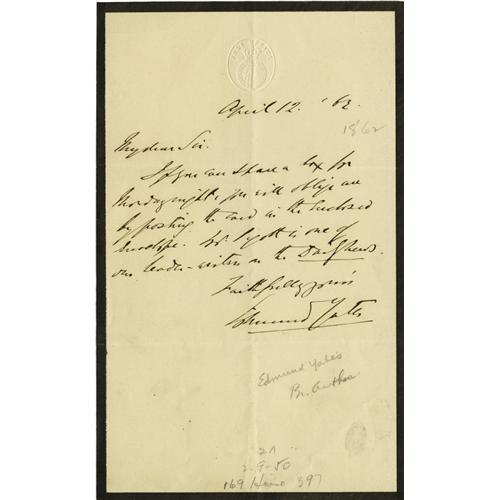 April 12. '62
1862
My dear Sir.
If you can spare a box for
Monday night, you will oblige me
by posting the card in the enclosed
envelope. Mr is one of
our leader-writers on the
Faithfully yours
Edmund Yates
Edmund Yates
Br. Author
21
2-9-50
169 397